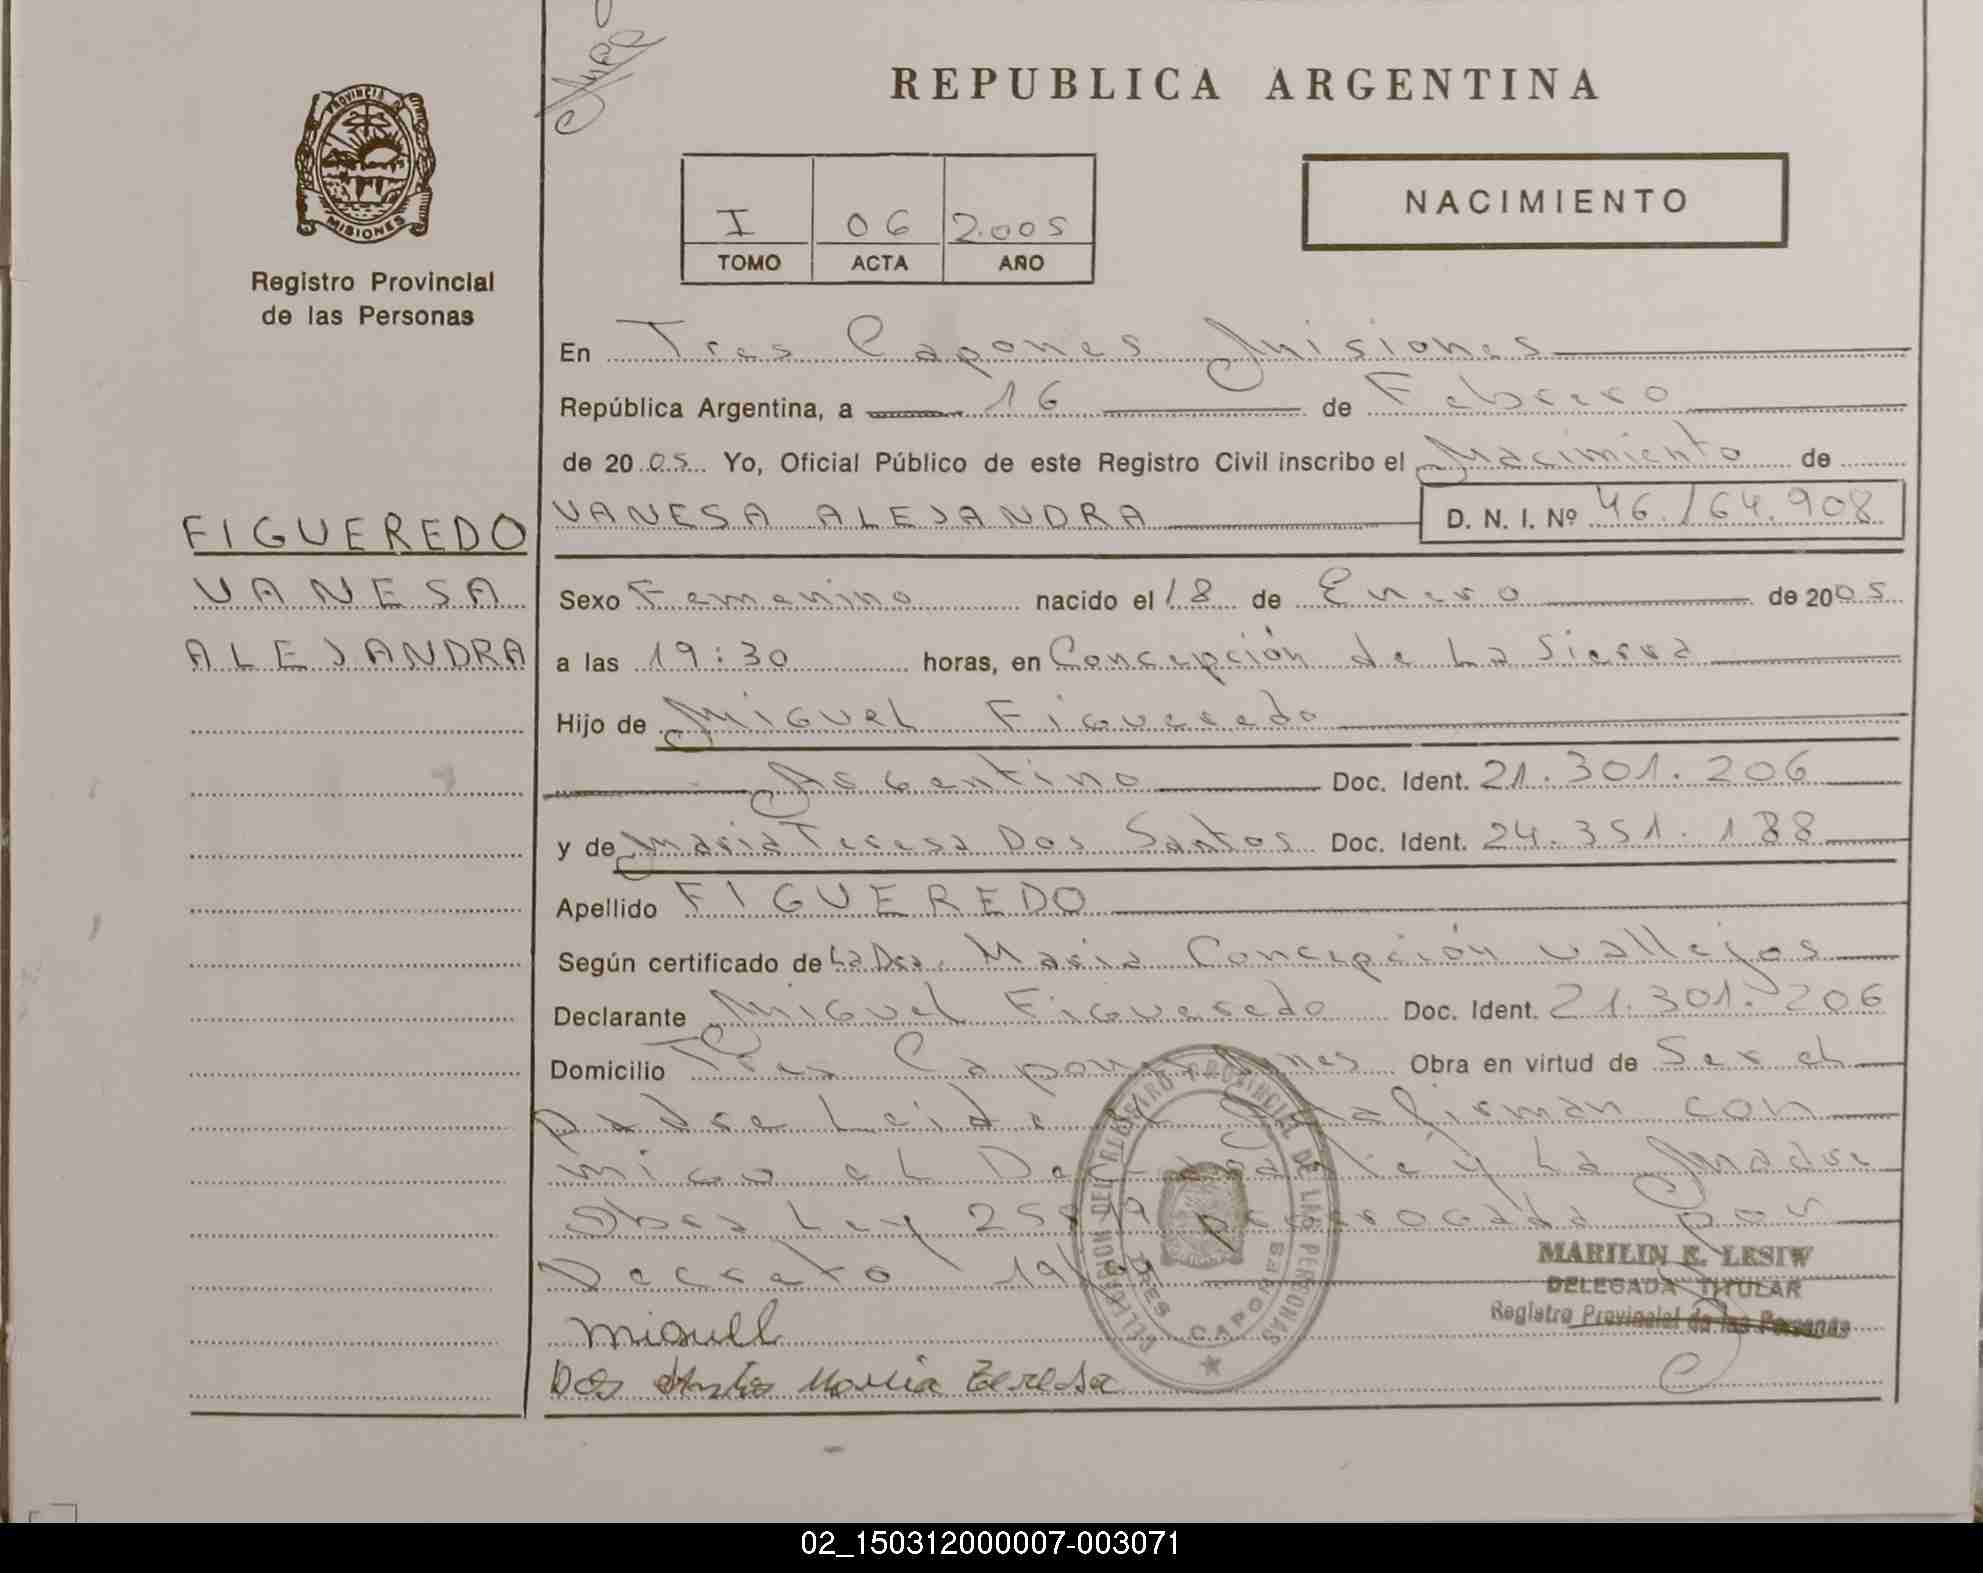 REPUBLICA ARGENTINA
PROVINCIA DE
MISIONES
Registro Provincial
de las Personas
I 06 2.005
TOMO ACTA AÑO
NACIMIENTO
En Tres Capones Misiones
República Argentina, a 16 de Febrero
de 20 05 Yo, Oficial Público de este Registro Civil inscribo el Nacimiento de
VANESA ALEJANDRA D. N. I. Nº 46.164.908
FIGUEREDO
VANESA
ALEJANDRA
Sexo Femenino nacido el 18 de Enero de 2005
a las 19:30 horas, en Concepción de La Sierra
Hijo de Miguel Figueredo
Argentino Doc. Ident. 21.301.206
y de Maria Teresa Dos Santos Doc. Ident. 24.351.188
Apellido FIGUEREDO
Según certificado de La Dra. Maria Concepción Vallejos
Declarante Miguel Figueredo Doc. Ident. 21.301.206
Domicilio Tres Capones Obra en virtud de Ser el
padre Leida firman con
migo el y La Madre
Obra Ley por
Decreto
MARILIN E. LESIW
DELEGADA TITULAR
Registro Provincial de las Personas
DELEGACION DEL REGISTRO PROVINCIAL DE LAS PERSONAS
TRES CAPONES
Miguel
Dos Santos Maria Teresa
02_150312000007-003071